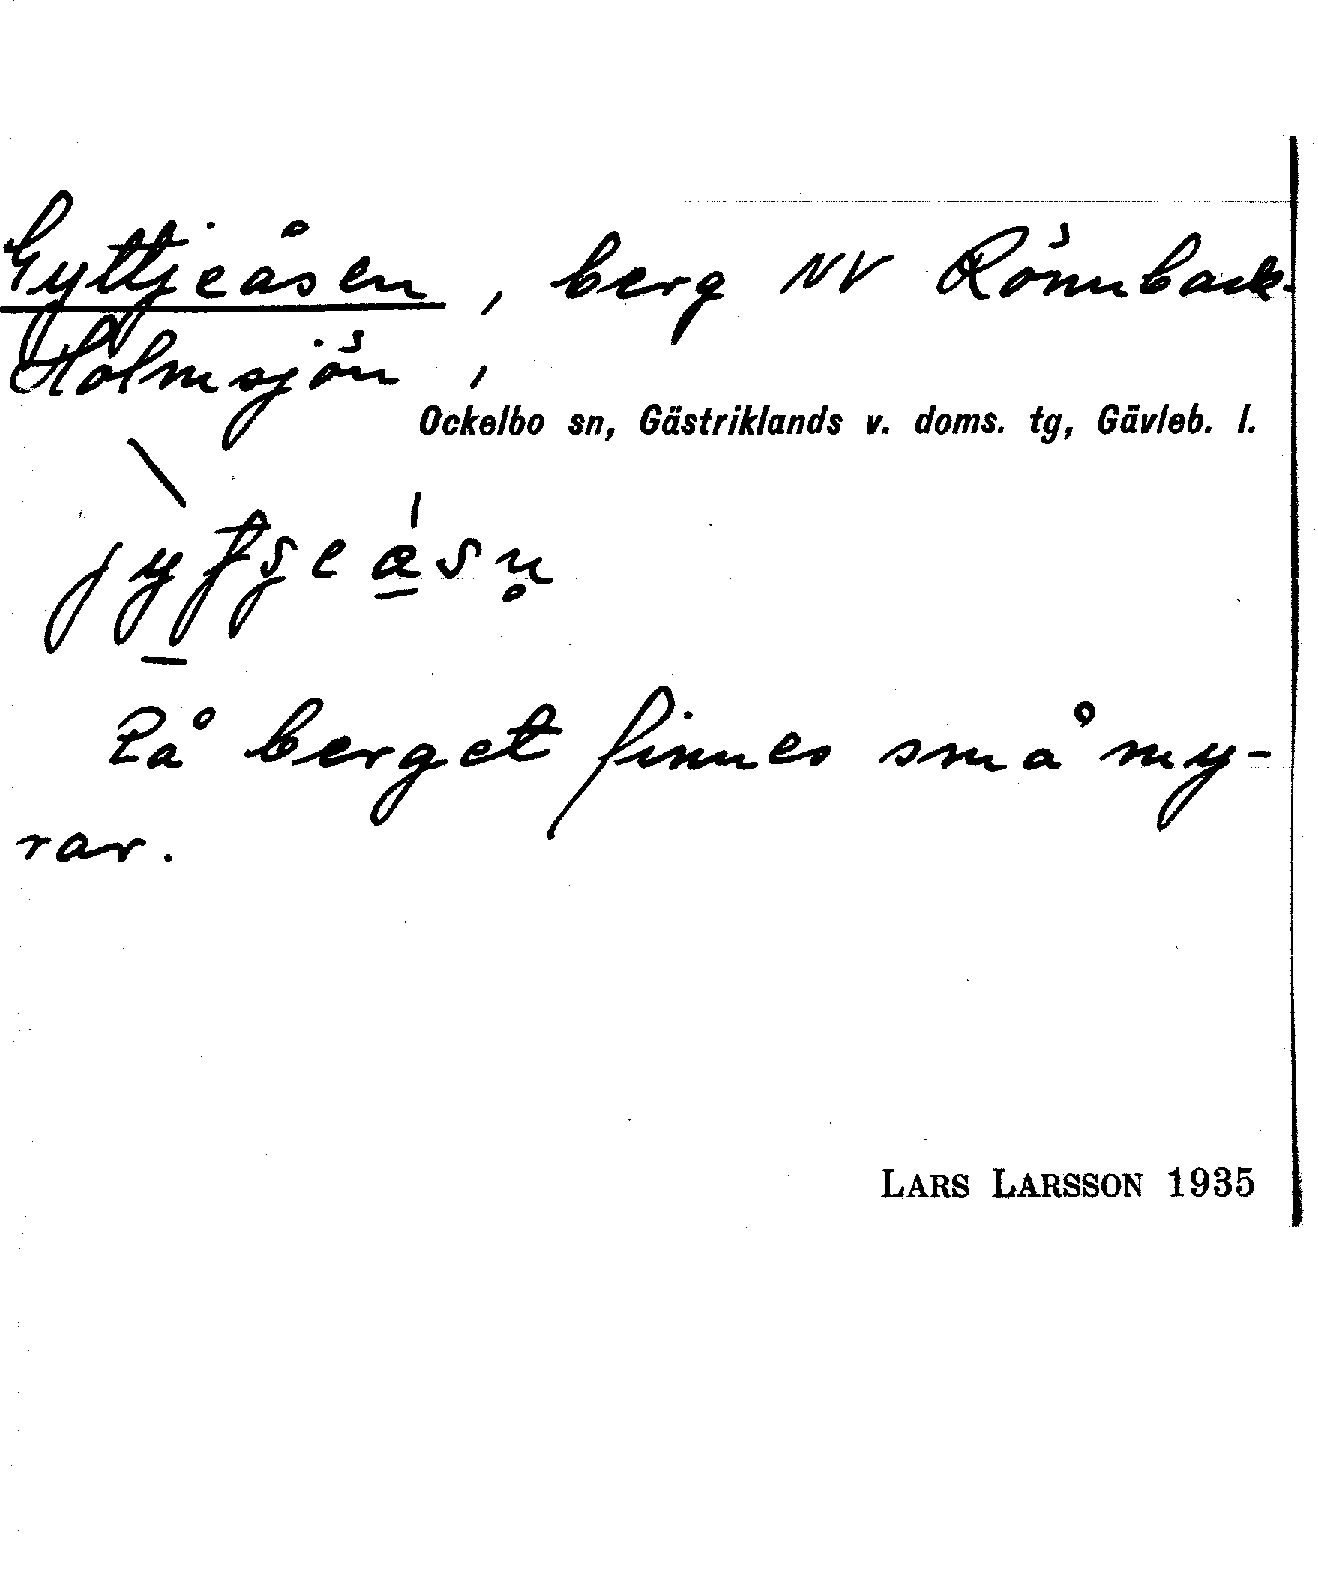 Gyttjeåsen, berg NV Rönnback-
Holmsjön,
Ockelbo sn, Gästriklands v. doms. tg, Gävleb. l.
På berget finnes små my-
rar.
LARS LARSSON 1935